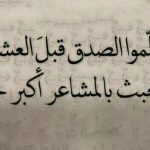 لّموا الصدق قبلَ العش
عبث بالمشاعر أكبر خ